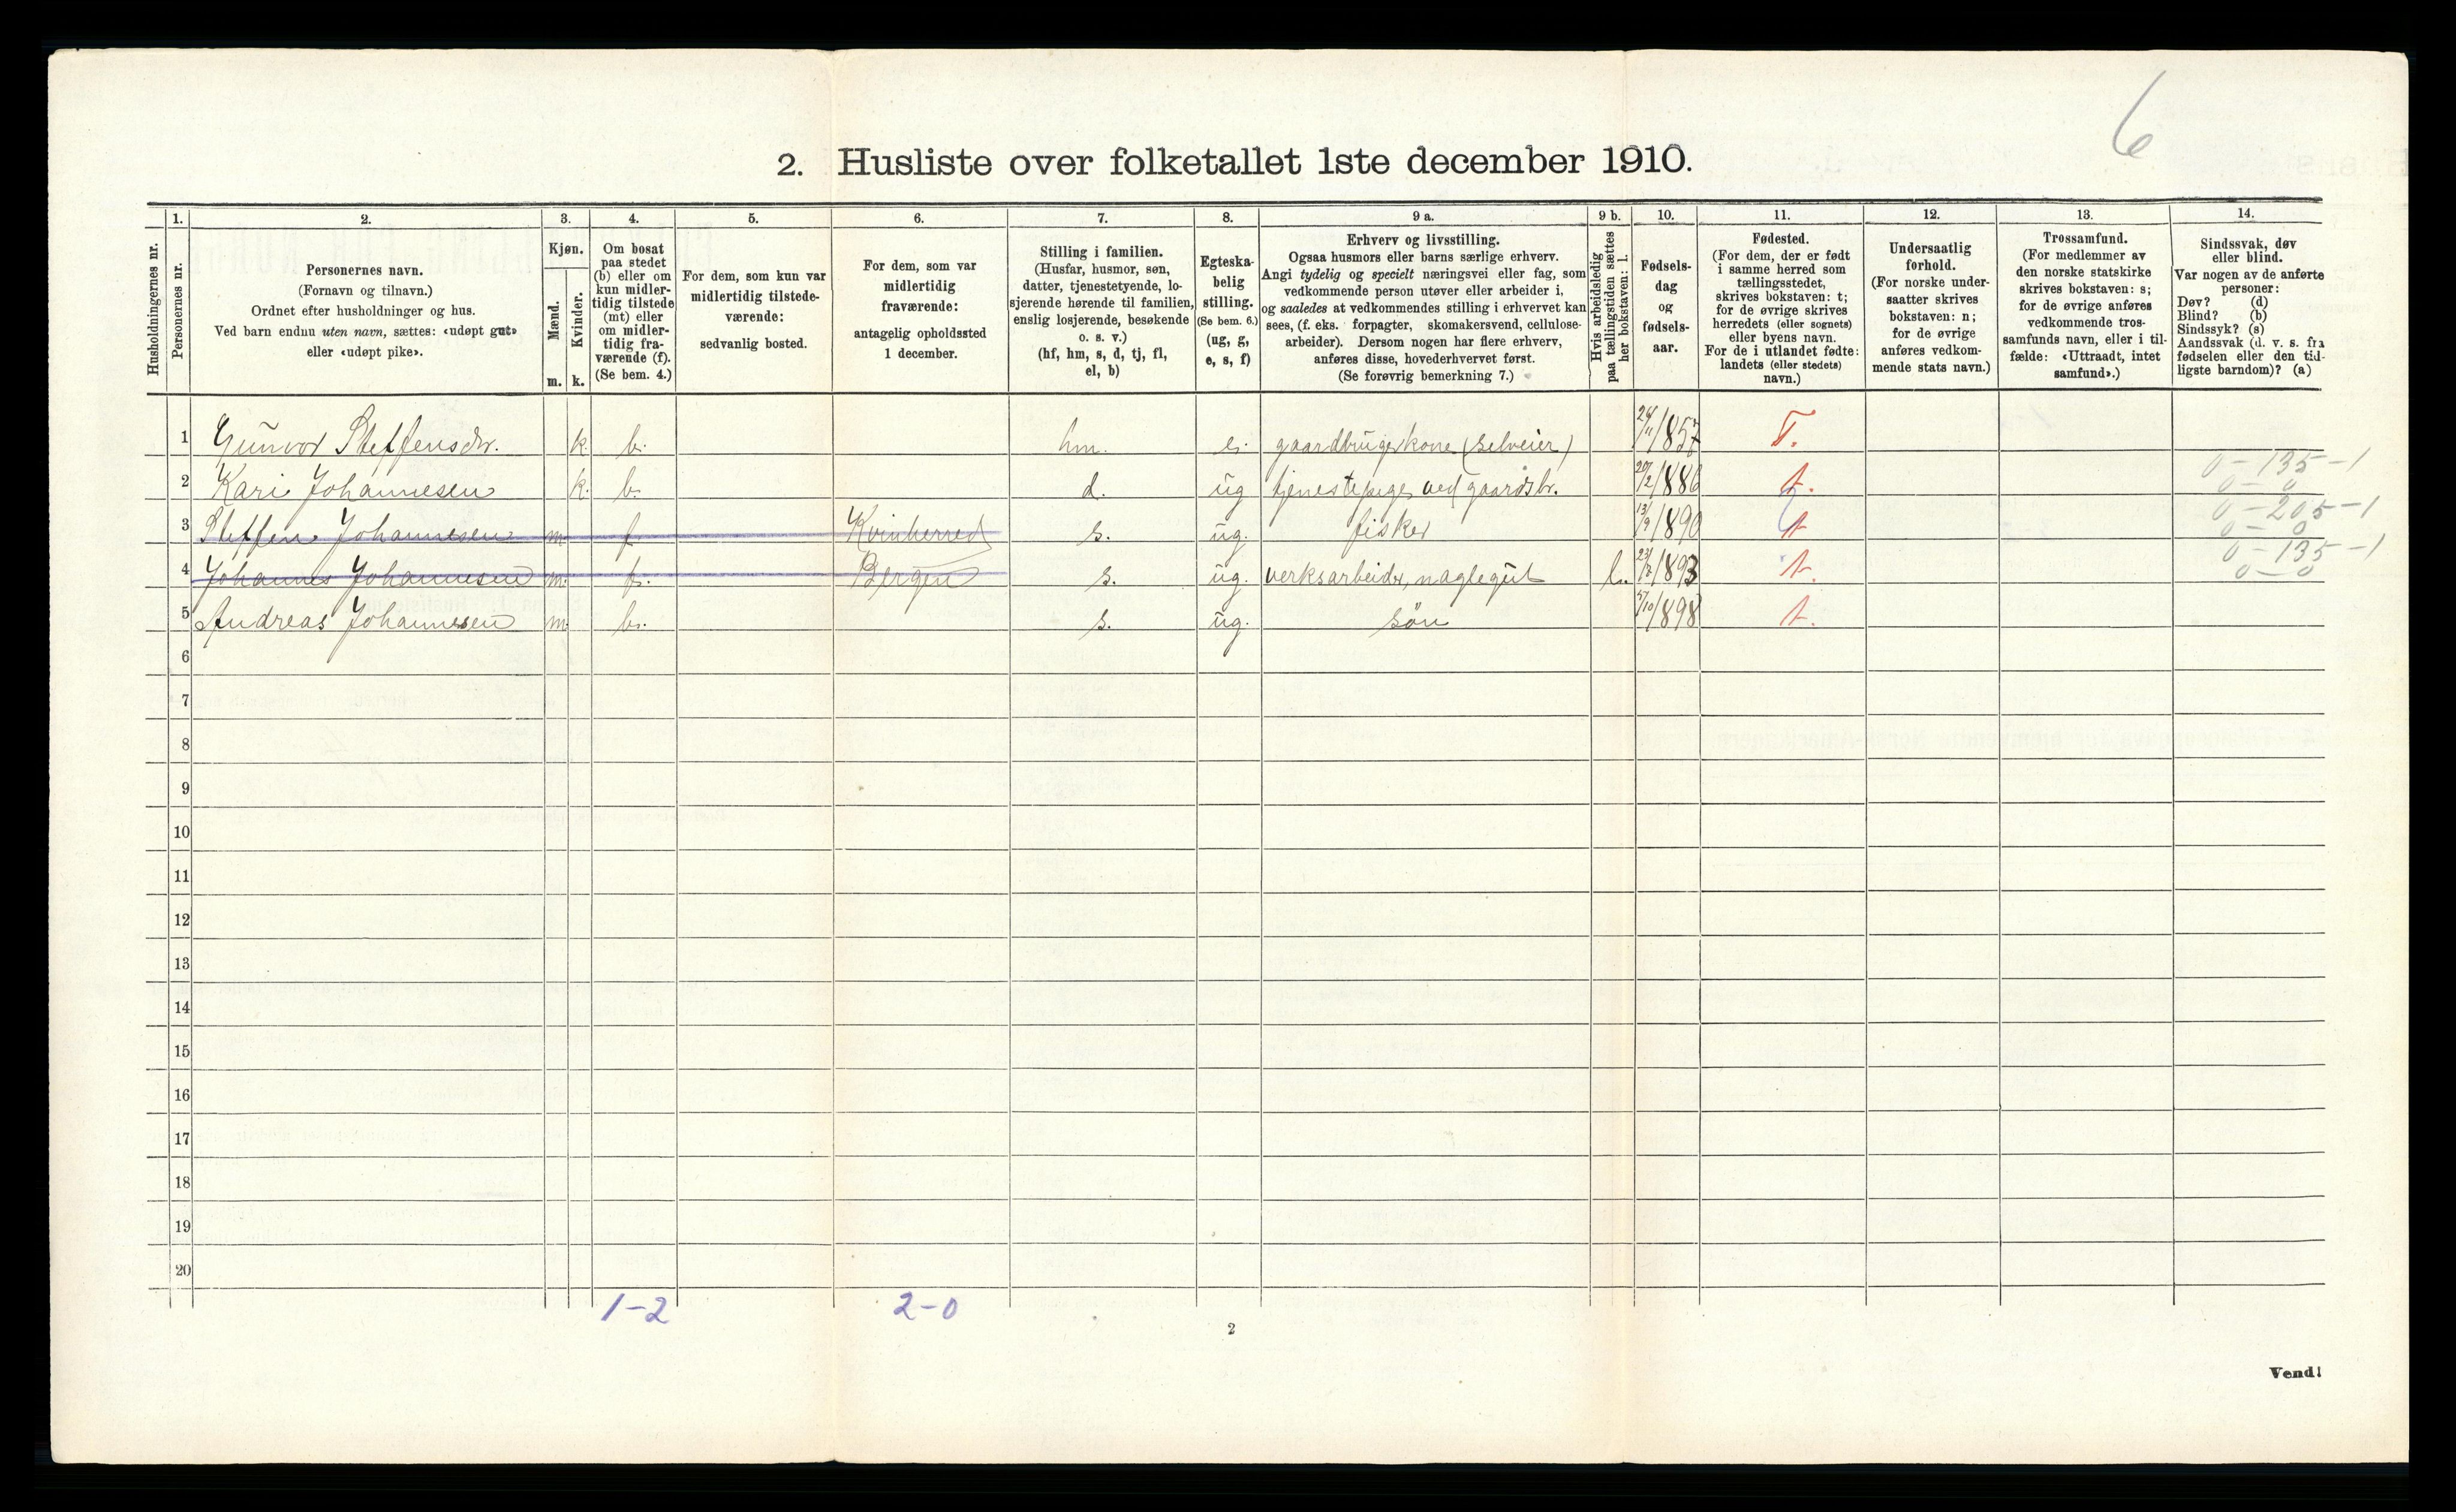 6
2. Husliste over folketallet 1ste december 1910.
Husholdningernes nr.
1.
Personernes nr.
2.
Personernes navn.
(Fornavn og tilnavn.)
Ordnet efter husholdninger og hus.
Ved barn endnu uten navn, sættes: «udøpt gut»
eller «udøpt pike».
3.
Kjøn.
Mænd.
m.
Kvinder.
k.
4.
Om bosat
paa stedet
(b) eller om
kun midler-
tidig tilstede
(mt) eller
om midler-
tidig fra-
værende (f).
(Se bem. 4.)
5.
For dem, som kun var
midlertidig tilstede-
værende:
sedvanlig bosted.
6.
For dem, som var
midlertidig
fraværende:
antagelig opholdssted
1 december.
7.
Stilling i familien.
(Husfar, husmor, søn,
datter, tjenestetyende, lo-
sjerende hørende til familien,
enslig losjerende, besøkende
o. s. v.)
(hf, hm, s, d, tj, fl,
el, b)
8.
Egteska-
belig
stilling.
(Se bem. 6.)
(ug, g,
e, s, f)
9 a.
Erhverv og livsstilling.
Ogsaa husmors eller barns særlige erhverv.
Angi tydelig og specielt næringsvei eller fag, som
vedkommende person utøver eller arbeider i,
og saaledes at vedkommendes stilling i erhvervet kan
sees, (f. eks. forpagter, skomakersvend, cellulose-
arbeider). Dersom nogen har flere erhverv,
anføres disse, hovederhvervet først.
(Se forøvrig bemerkning 7.)
9 b.
Hvis arbeidsledig
paa tællingstiden sættes
her bokstaven: l.
10.
Fødsels-
dag
og
fødsels-
aar.
11.
Fødested.
(For dem, der er født
i samme herred som
tællingsstedet,
skrives bokstaven: t;
for de øvrige skrives
herredets (eller sognets)
eller byens navn.
For de i utlandet fødte:
landets (eller stedets)
navn.)
12.
Undersaatlig
forhold.
(For norske under-
saatter skrives
bokstaven: n;
for de øvrige
anføres vedkom-
mende stats navn.)
13.
Trossamfund.
(For medlemmer av
den norske statskirke
skrives bokstaven: s;
for de øvrige anføres
vedkommende tros-
samfunds navn, eller i til-
fælde: «Uttraadt, intet
samfund».)
14.
Sindssvak, døv
eller blind.
Var nogen av de anførte
personer:
Døv? (d)
Blind? (b)
Sindssyk? (s)
Aandssvak (d. v. s. fra
fødselen eller den tid-
ligste barndom)? (a)
1 Gunvor Steffensdr. k. b. hm. e. gaardbrugerkone (selveier) 24/11/857 T.
2 Kari Johannesen k. b. d. ug tjenestepige ved gaardsbr. 20/2/886 t. 0-135-1
0-0
3 Steffen Johannesen m f Kvinherred s. ug. fisker 13/9/890 t 0-205-1
0-0
4 Johannes Johannesen m. f. Bergen s. ug. verksarbeider, naglegut l. 23/7/893 t. 0-135-1
0-0
5 Andreas Johannesen m. b. s. ug. søn 5/10/898 t.
6
7
8
9
10
11
12
13
14
15
16
17
18
19
20
1-2 2-0
2
Vend!